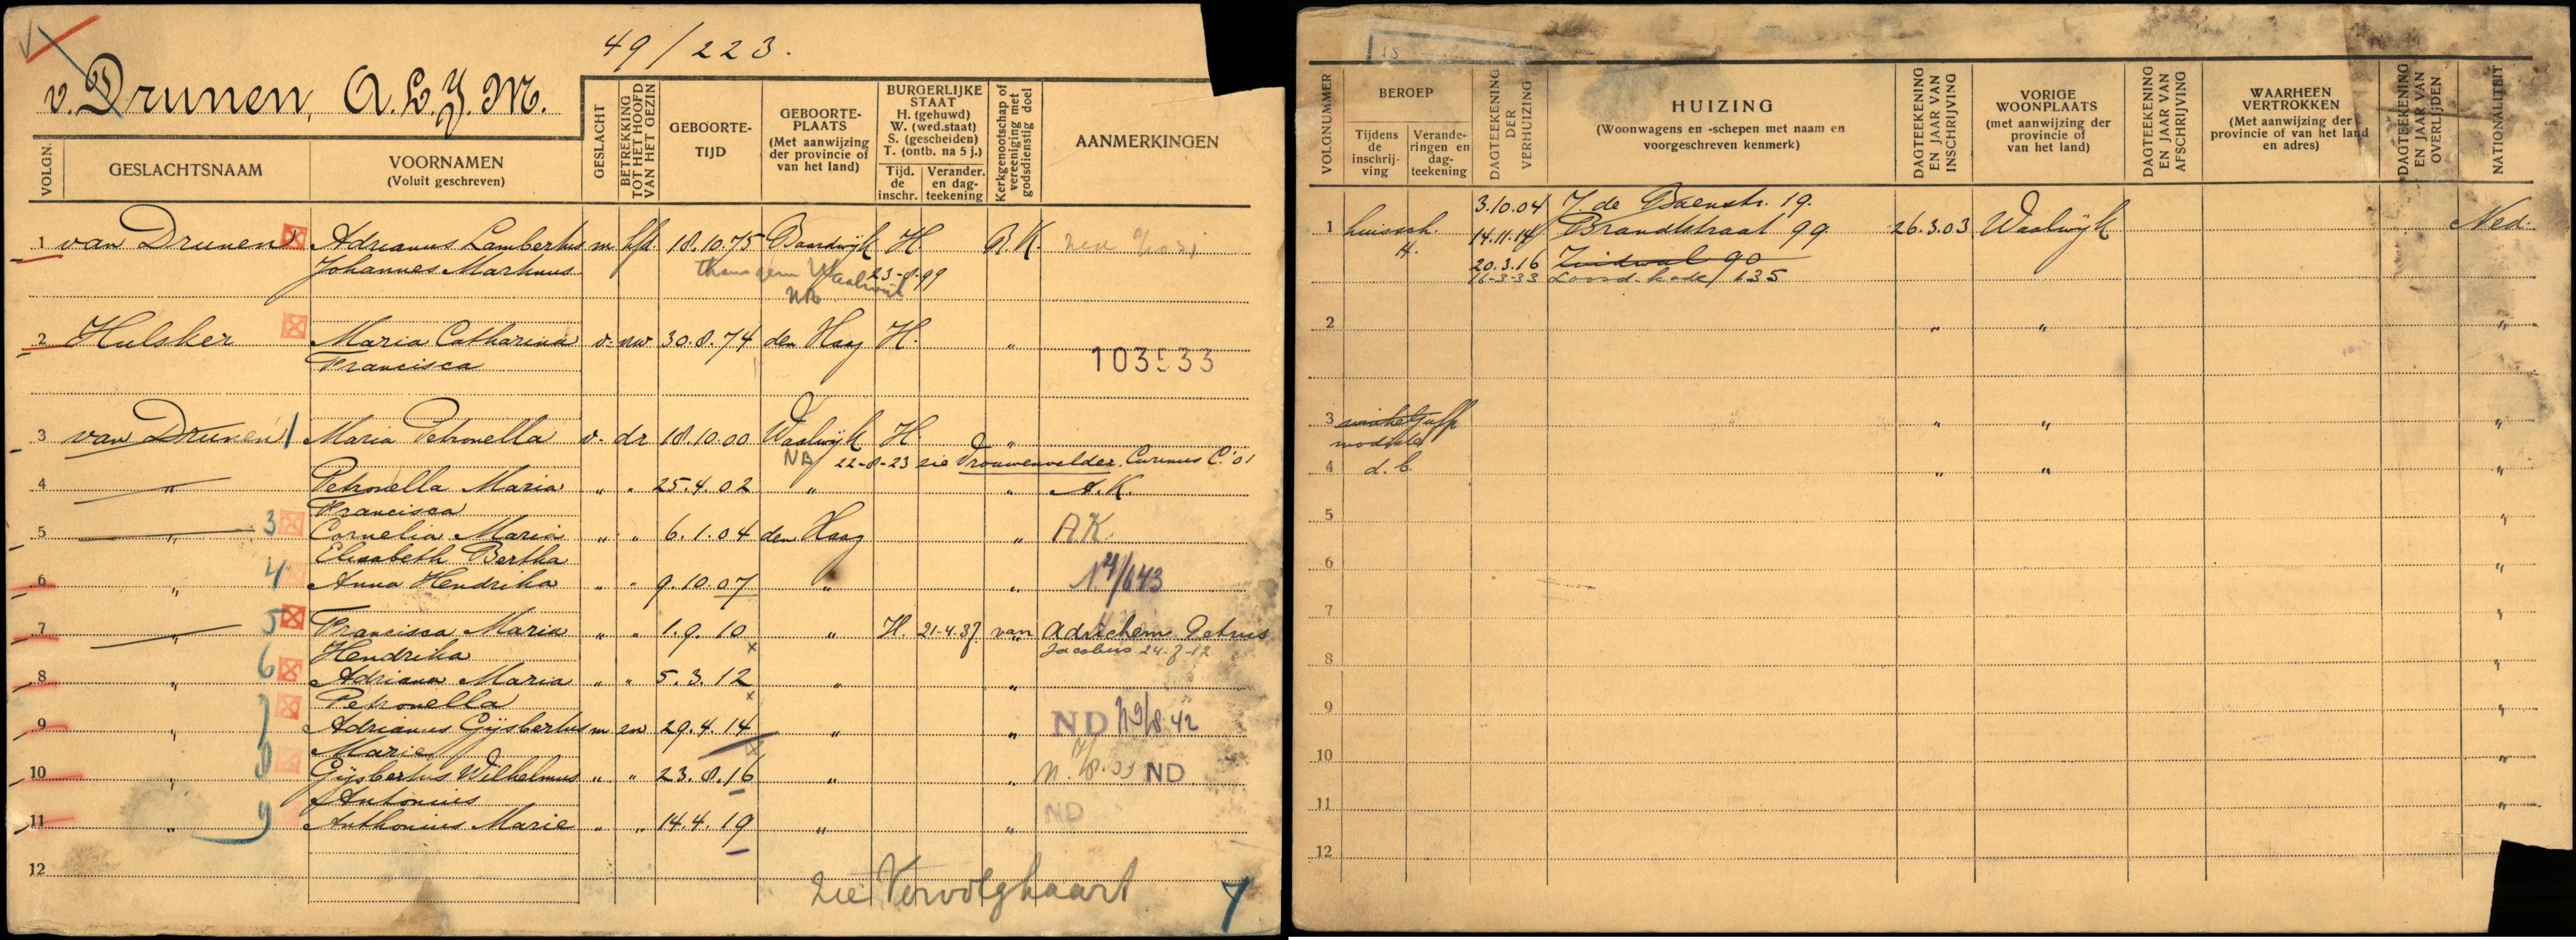 49/223.
v. Drunen, A.L.J.M.
VOLGN.
GESLACHTSNAAM
VOORNAMEN
(Voluit geschreven)
GESLACHT
BETREKKING TOT HET HOOFD VAN HET GEZIN
GEBOORTE-
TIJD
GEBOORTE-
PLAATS
(Met aanwijzing
der provincie of
van het land)
BURGERLIJKE
STAAT
H. (gehuwd)
W. (wed.staat)
S. (gescheiden)
T. (ontb. na 5 j.)
Tijd.
de
inschr.
Verander.
en dag-
teekening
Kerkgenootschap of vereeniging met godsdienstig doel
AANMERKINGEN
1 van Drunen Adrianus Lambertus m hfd. 18.10.75 Baardwijk H R.K.
Johannes Martinus thans gem Waalwijk 23-8-99
NB
2 Hulsker Maria Catharina v. vrw 30.8.74 den Haag H. "
Francisca 103533
3 van Drunen 1 Maria Petronella v. dr 18.10.00 Waalwijk H. "
NB 22-8-23 zie Vrouwenvelder, C. '01
4 " Petronella Maria " " 25.4.02 " " A.K.
Francisca
5 " 3 Cornelia Maria " " 6.1.04 den Haag " AK.
Elisabeth Bertha
6 " 4 Anna Hendrika " " 9.10.07 " "
7 " 5 Francisca Maria " " 1.9.10 " H. 21-4-37 van Adrichem Petrus
Hendrika Jacobus 24-7-12
8 " 6 Adriana Maria " " 5.3.12 " "
Petronella
9 " 7 Adrianus Gijsbertus m zn 29.4.14 " " ND
Marie
10 " 8 Gijsbertus Wilhelmus " " 23.8.16 " " ND
Antonius
11 " 9 Anthonius Marie " " 14.4.19 " " ND
12
zie Vervolgkaart
7
VOLGNUMMER
BEROEP
Tijdens
de
inschrij-
ving
Verande-
ringen en
dag-
teekening
DAGTEEKENING DER VERHUIZING
HUIZING
(Woonwagens en -schepen met naam en
voorgeschreven kenmerk)
DAGTEEKENING EN JAAR VAN INSCHRIJVING
VORIGE
WOONPLAATS
(met aanwijzing der
provincie of
van het land)
DAGTEEKENING EN JAAR VAN AFSCHRIJVING
WAARHEEN
VERTROKKEN
(Met aanwijzing der
provincie of van het land
en adres)
DAGTEEKENING EN JAAR VAN OVERLIJDEN
NATIONALITEIT
3.10.04 J. de Baenstr. 19.
1 huissch. 14.11.14 Brandtstraat 99 26.3.03 Waalwijk Ned.
H. 20.3.16 Zuidwal 90
16-3-33 Loosd. kade 135
2 " " "
3 " " "
modiste
4 d.b. " " "
5 "
6 "
7 "
8 "
9 "
10 "
11 "
12